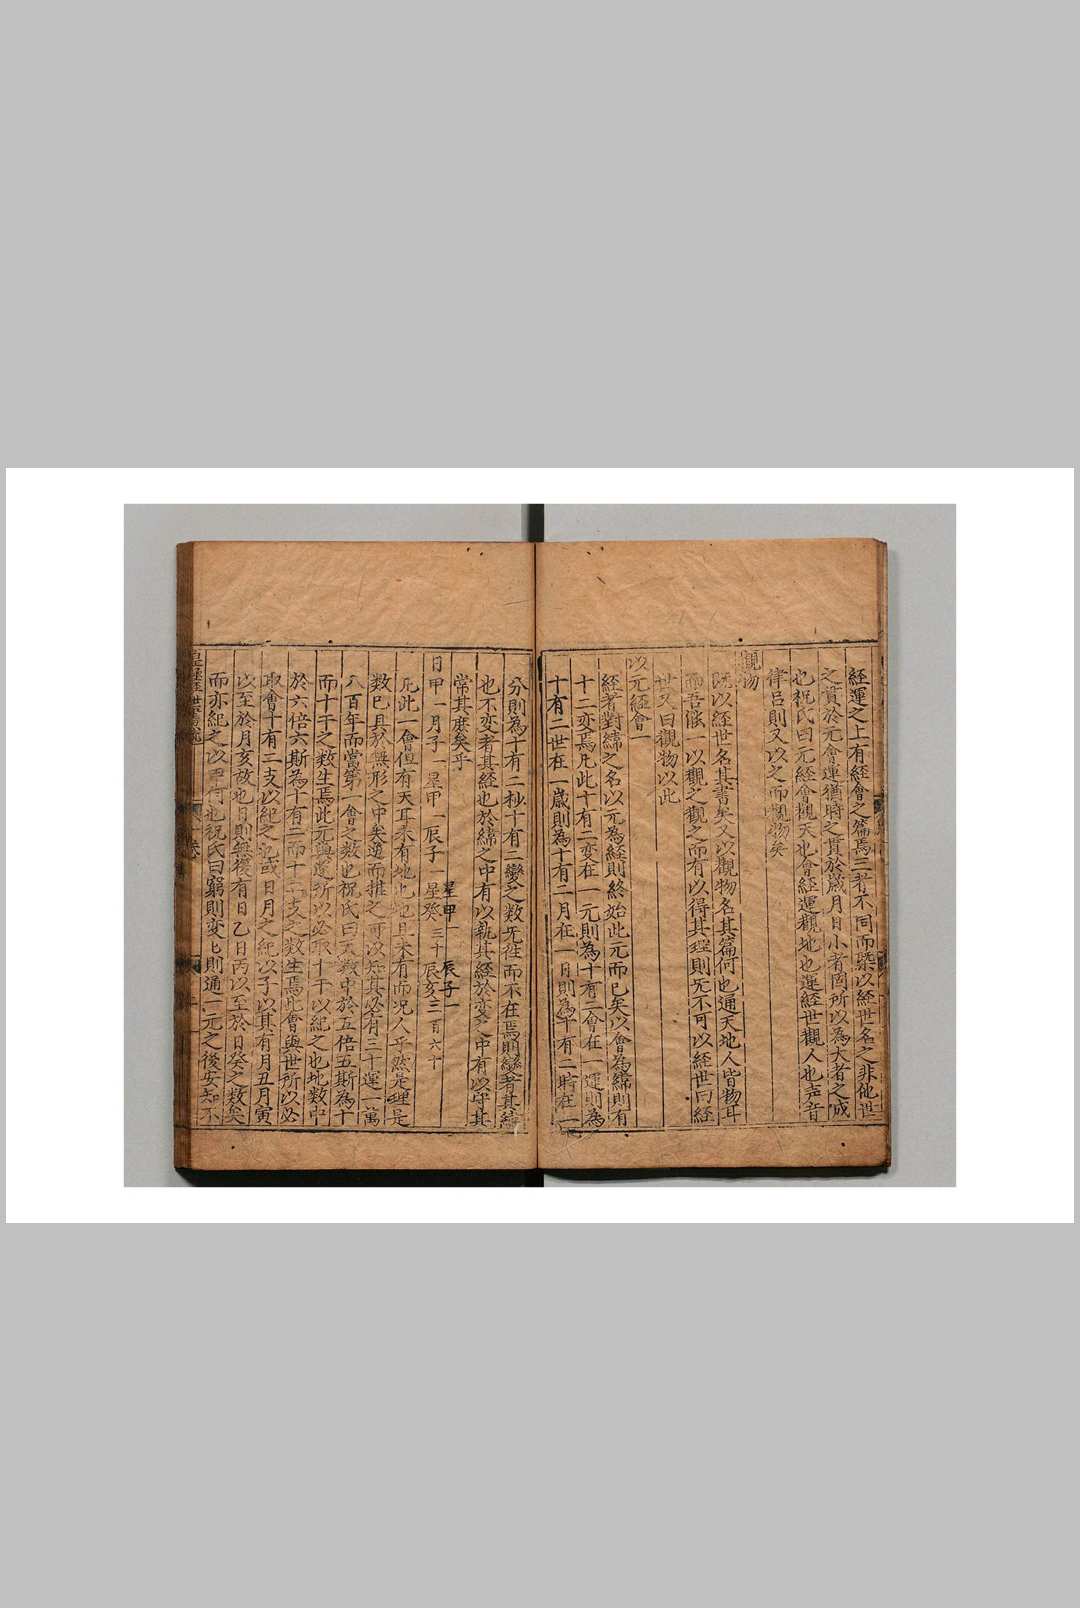 經運之上有經會之篇焉三者不同而槩以經世名之非他世
之貫於元會運猶時之貫於歲月日小者固所以為大者之成
也祝氏曰元經會觀天也會經運觀地也運經世觀人也声音
律呂則又以之而觀物矣
觀物
既以經世名其書矣又以觀物名其篇何也通天地人皆物耳
而吾一以觀之觀之而有以得其理則旡不可以經世曰經
世又曰觀物以此
以元經會一
經者對緯之名以元為經則終始此元而已矣以會為緯則有
十二变焉凡此十有二变在一元則為十有二會在一運則為
十有二世在一歲則為十有二月在一月則為十有二時在一
分則為十有二秒十有二變之数旡徃而不在焉則變者其緯
也不变者其經也於緯之中有以執其經於变之中有以守其
常其庶矣乎
日甲一月子一星甲一辰子一星癸三十辰亥三百六十
星甲一辰子一
凡此一會但有天耳未有地也地且未有而况人乎然是理是
数已具於無形之中矣遡而推之可以知其必有三十運一萬
八百年而當第一會之数也祝氏曰天数中於五倍五斯為十
而十干之数生焉此元與運所以必取十干以紀之也地数中
於六倍六斯為十有二而十二支之数生焉此會與世所以必
取會十有二支以紀之也或日月之紀以子以其有月丑月寅
以至於月亥故也日則無復有日乙日丙以至於日癸之数矣
而亦紀之以甲何也祝氏曰窮則变变則通一元之後安知不
皇極經世書說